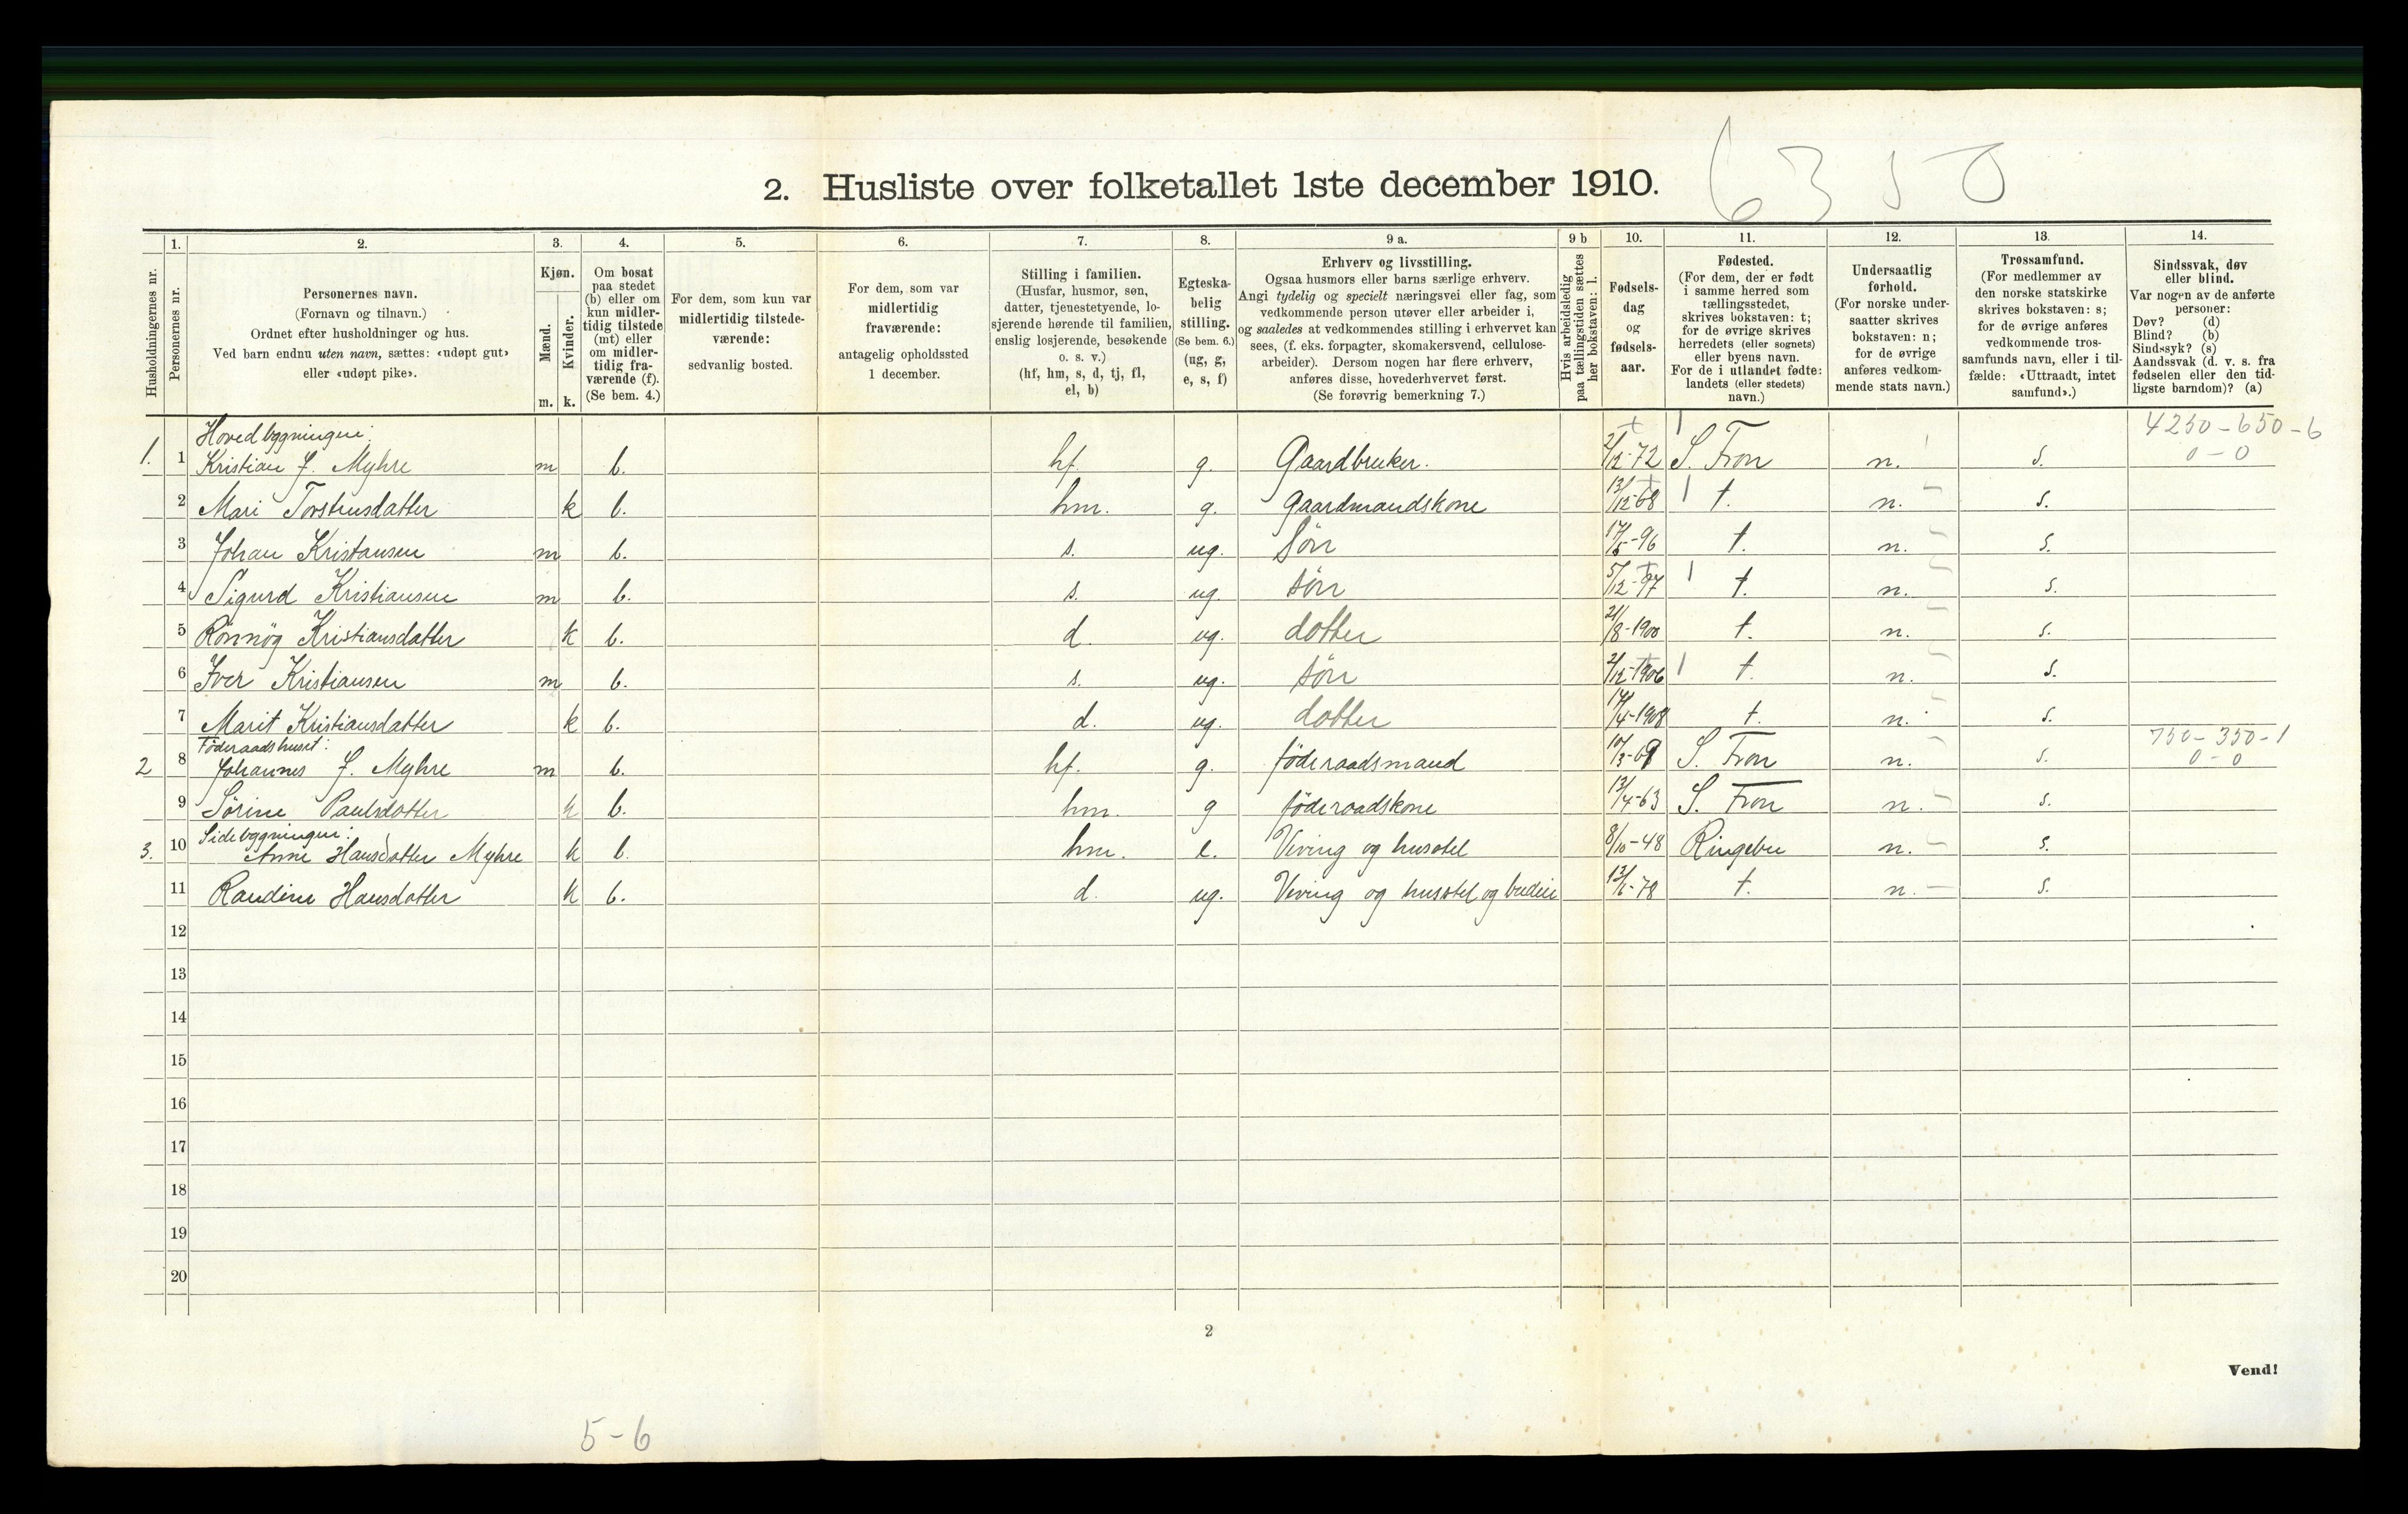 6350
2. Husliste over folketallet 1ste december 1910.
Husholdningernes nr.
1.
Personernes nr.
2.
Personernes navn.
(Fornavn og tilnavn.)
Ordnet efter husholdninger og hus.
Ved barn endnu uten navn, sættes: «udøpt gut»
eller «udøpt pike».
3.
Kjøn.
Mænd.
Kvinder.
m. k.
4.
Om bosat
paa stedet
(b) eller om
kun midler-
tidig tilstede
(mt) eller
om midler-
tidig fra-
værende (f).
(Se bem. 4.)
5.
For dem, som kun var
midlertidig tilstede-
værende:
sedvanlig bosted.
6.
For dem, som var
midlertidig
fraværende:
antagelig opholdssted
1 december.
7.
Stilling i familien.
(Husfar, husmor, søn,
datter, tjenestetyende, lo-
sjerende hørende til familien,
enslig losjerende, besøkende
o. s. v.)
(hf, hm, s, d, tj, fl,
el, b)
8.
Egteska-
belig
stilling.
(Se bem. 6.)
(ug, g,
e, s, f)
9 a.
Erhverv og livsstilling.
Ogsaa husmors eller barns særlige erhverv.
Angi tydelig og specielt næringsvei eller fag, som
vedkommende person utøver eller arbeider i,
og saaledes at vedkommendes stilling i erhvervet kan
sees, (f. eks. forpagter, skomakersvend, cellulose-
arbeider). Dersom nogen har flere erhverv,
anføres disse, hovederhvervet først.
(Se forøvrig bemerkning 7.)
9 b
Hvis arbeidsledig
paa tællingstiden sættes
her bokstaven: l.
10.
Fødsels-
dag
og
fødsels-
aar.
11.
Fødested.
(For dem, der er født
i samme herred som
tællingsstedet,
skrives bokstaven: t;
for de øvrige skrives
herredets (eller sognets)
eller byens navn.
For de i utlandet fødte:
landets (eller stedets)
navn.)
12.
Undersaatlig
forhold.
(For norske under-
saatter skrives
bokstaven: n;
for de øvrige
anføres vedkom-
mende stats navn.)
13.
Trossamfund.
(For medlemmer av
den norske statskirke
skrives bokstaven: s;
for de øvrige anføres
vedkommende tros-
samfunds navn, eller i til-
fælde: «Uttraadt, intet
samfund».)
14.
Sindssvak, døv
eller blind.
Var nogen av de anførte
personer:
Døv? (d)
Blind? (b)
Sindssyk? (s)
Aandssvak (d. v. s. fra
fødselen eller den tid-
ligste barndom)? (a)
Hovedbygningen: 4250-650-6
1. 1 Kristian J. Myhre m b. hf. g. Gaardbruker. 2/12-72 S. Fron n. s. 0-0
2 Mari Torstensdatter k b. hm. g. Gaardmandskone 13/12-68 t. n. s.
3 Johan Kristansen m b. s. ug. Sön 17/5-96 t. n. s.
4 Sigurd Kristiansen m b. s. ug. sön 5/12-97 t. n. s.
5 Rönnög Kristiansdatter k b. d. ug. dotter 21/8-1900 t. n. s.
6 Iver Kristiansen m b. s. ug. sön 2/12-1906 t. n. s.
7 Marit Kristiansdatter k b. d. ug. dotter 14/4-1908 t. n. s.
Föderaadshuset: 750-350-1
2 8 Johannes J. Myhre m b. hf. g. föderaadsmand 10/3-69 S. Fron n. s. 0-0
9 Sörine Paulsdotter k b. hm. g föderaadskone 13/4-63 S. Fron n. s.
Sidebygningen:
3. 10 Anne Hansdotter Myhre k b. hm. e. Veving og husstel 8/10-48 Ringebu n. s.
11 Randine Hansdotter k b. d. ug. Veving og husstel og budeie 13/6-78 t. n. s.
12
13
14
15
16
17
18
19
20
2
Vend!
5-6